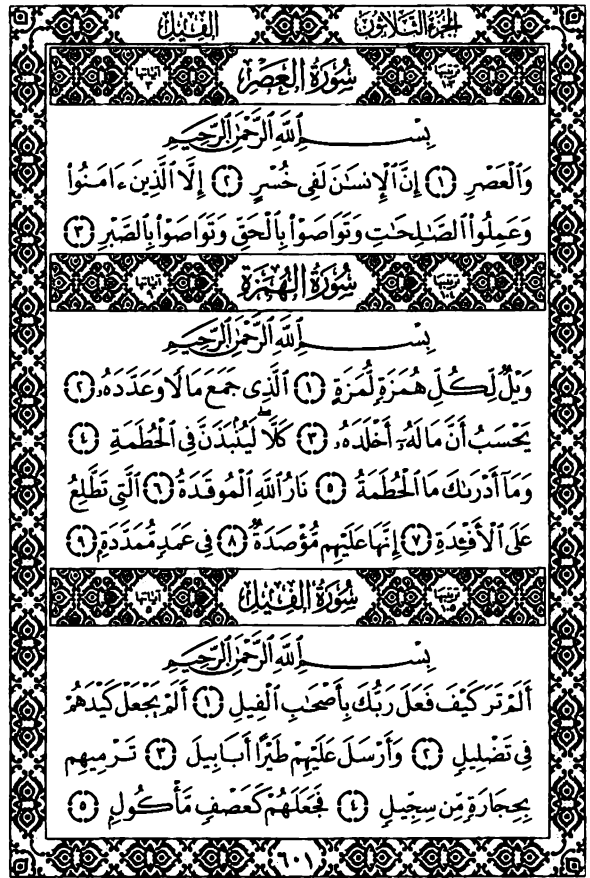 الجزء الثلاثون الفيل
ترتيبها ١٠٣ سورة العصر آياتها ٣
بِسْمِ ٱللَّهِ ٱلرَّحْمَٰنِ ٱلرَّحِيمِ
وَٱلْعَصْرِ ١ إِنَّ ٱلْإِنسَٰنَ لَفِى خُسْرٍ ٢ إِلَّا ٱلَّذِينَ ءَامَنُوا۟
وَعَمِلُوا۟ ٱلصَّٰلِحَٰتِ وَتَوَاصَوْا۟ بِٱلْحَقِّ وَتَوَاصَوْا۟ بِٱلصَّبْرِ ٣
ترتيبها ١٠٤ سورة الهمزة آياتها ٩
بِسْمِ ٱللَّهِ ٱلرَّحْمَٰنِ ٱلرَّحِيمِ
وَيْلٌ لِّكُلِّ هُمَزَةٍ لُّمَزَةٍ ١ ٱلَّذِى جَمَعَ مَالًا وَعَدَّدَهُۥ ٢
يَحْسَبُ أَنَّ مَالَهُۥٓ أَخْلَدَهُۥ ٣ كَلَّا ۖ لَيُنۢبَذَنَّ فِى ٱلْحُطَمَةِ ٤
وَمَآ أَدْرَىٰكَ مَا ٱلْحُطَمَةُ ٥ نَارُ ٱللَّهِ ٱلْمُوقَدَةُ ٦ ٱلَّتِى تَطَّلِعُ
عَلَى ٱلْأَفْـِٔدَةِ ٧ إِنَّهَا عَلَيْهِم مُّؤْصَدَةٌ ٨ فِى عَمَدٍ مُّمَدَّدَةٍۭ ٩
ترتيبها ١٠٥ سورة الفيل آياتها ٥
بِسْمِ ٱللَّهِ ٱلرَّحْمَٰنِ ٱلرَّحِيمِ
أَلَمْ تَرَ كَيْفَ فَعَلَ رَبُّكَ بِأَصْحَٰبِ ٱلْفِيلِ ١ أَلَمْ يَجْعَلْ كَيْدَهُمْ
فِى تَضْلِيلٍ ٢ وَأَرْسَلَ عَلَيْهِمْ طَيْرًا أَبَابِيلَ ٣ تَرْمِيهِم
بِحِجَارَةٍ مِّن سِجِّيلٍ ٤ فَجَعَلَهُمْ كَعَصْفٍ مَّأْكُولٍۭ ٥
٦٠١